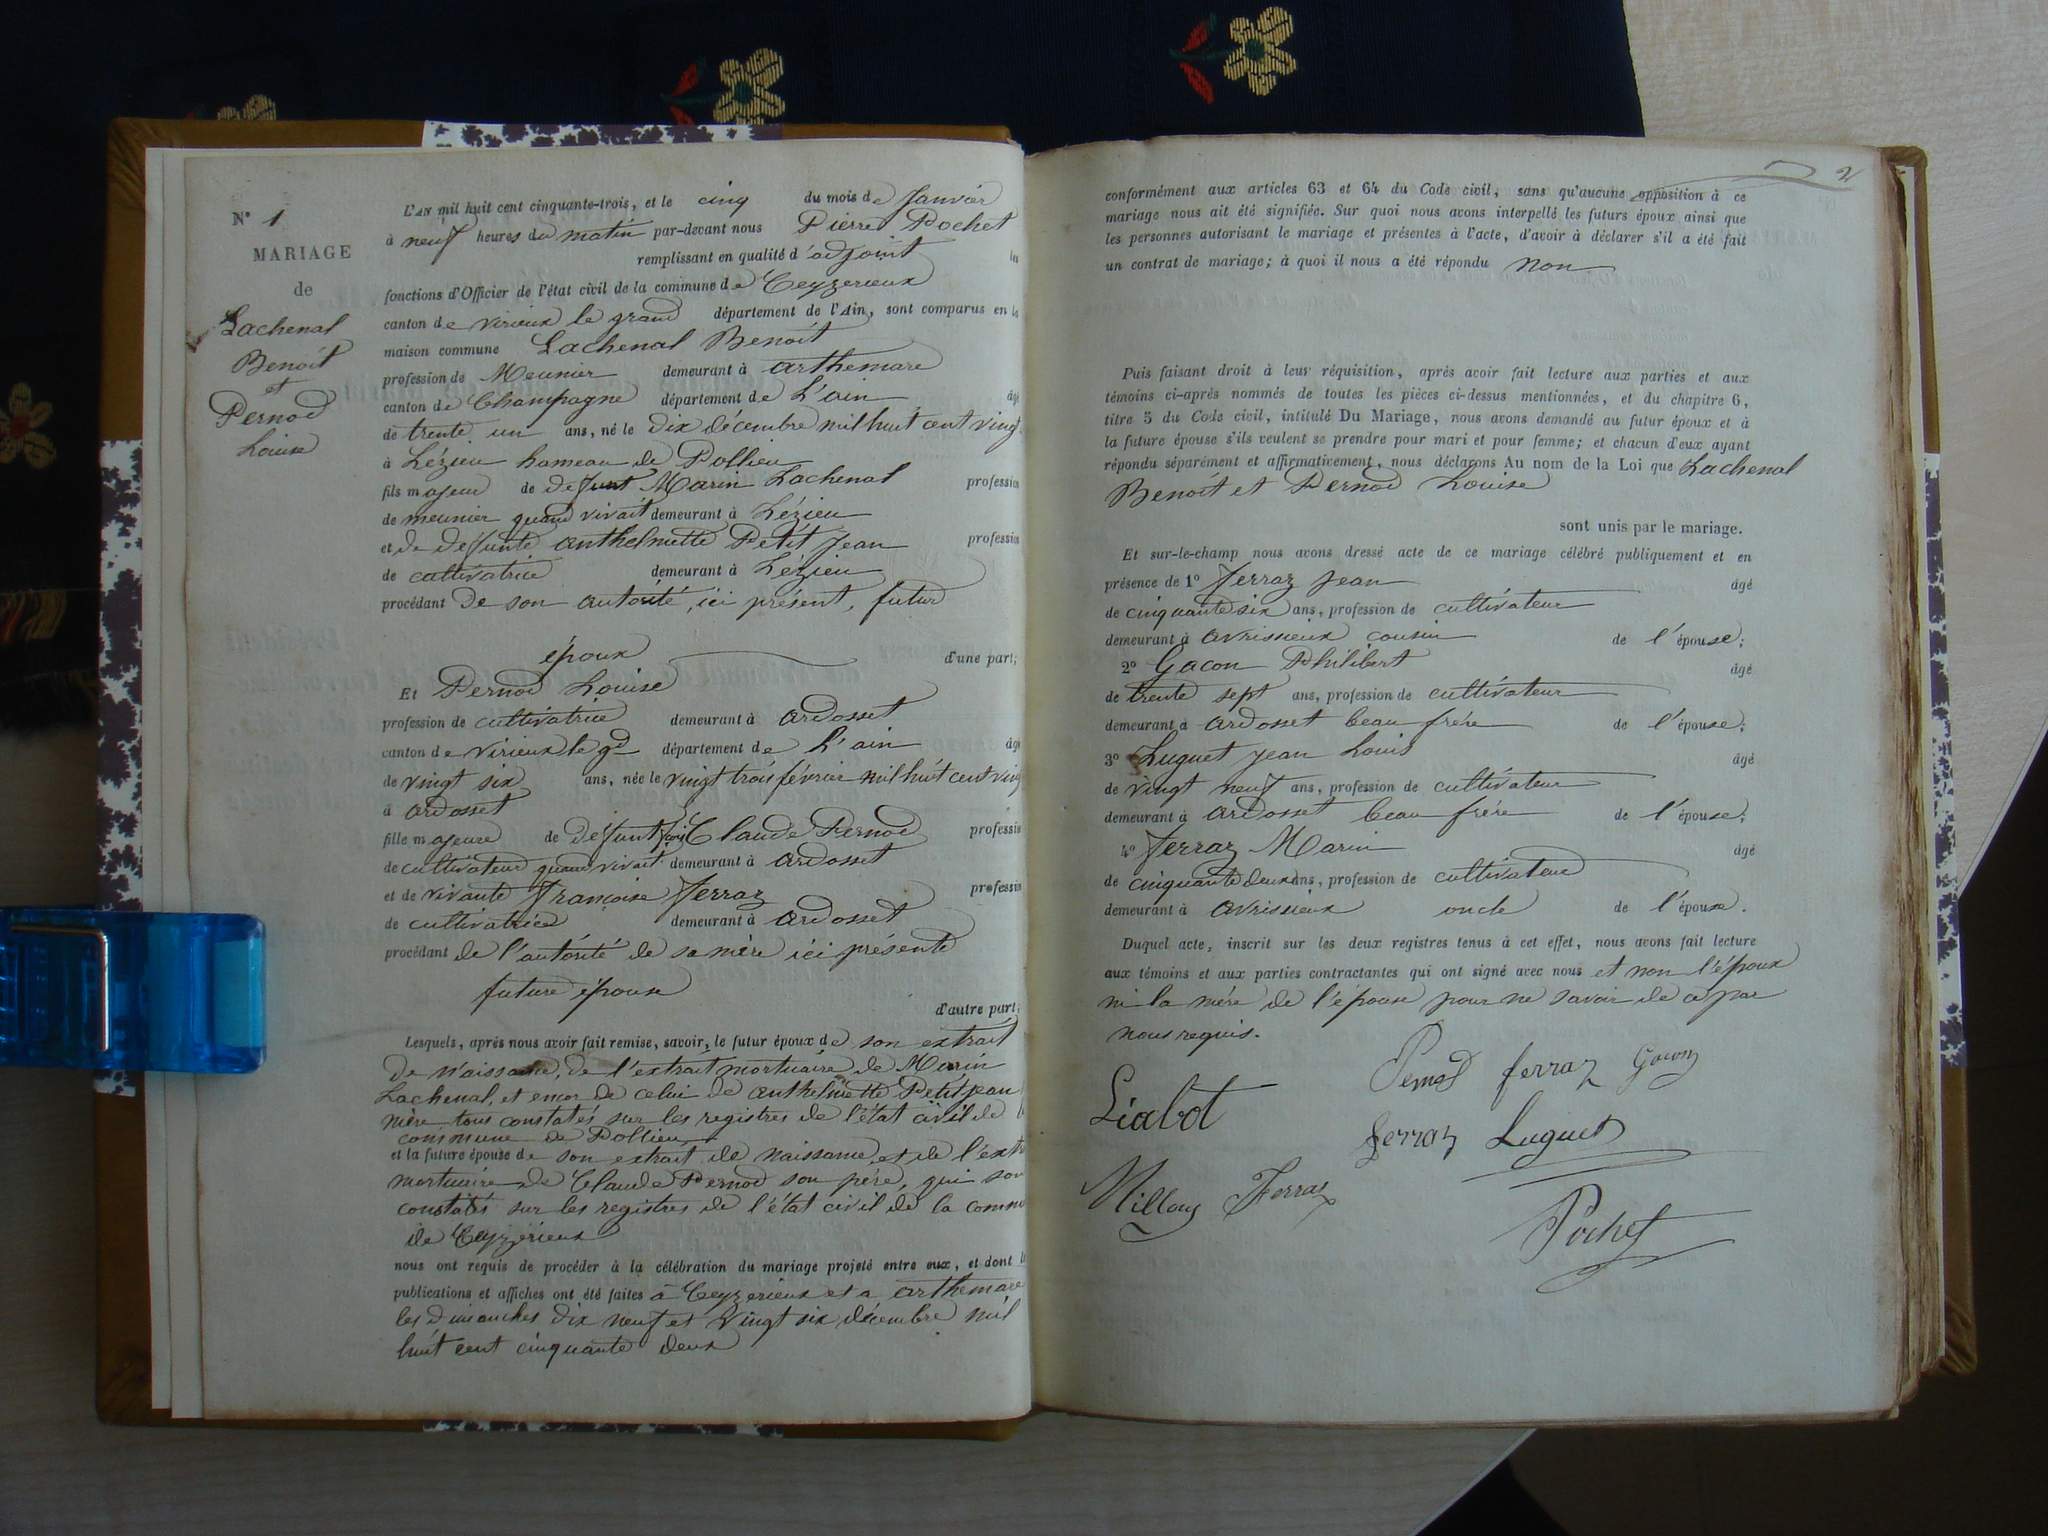 N° 1
MARIAGE
de
Lachenal
Benoit
et
Pernod
Louise
L'AN mil huit cent cinquante-trois, et le cinq du mois de Janvier
à neuf heures du matin par-devant nous Pierre Pochet
remplissant en qualité d'adjoint les
fonctions d'Officier de l'état civil de la commune de Ceyzerieux
canton de virieux le grand département de l'Ain, sont comparus en la
maison commune Lachenal Benoit
profession de Meunier demeurant à arthemare
canton de Champagne département de L'ain âgé
de trente un ans, né le dix décembre mil huit cent vingt
à Lézieu hameau de Pollieu
fils majeur de defunt Marin Lachenal profession
de meunier quand vivait demeurant à Lézieu
et de defunte anthelmette Petit Jean profession
de cultivatrice demeurant à Lézieu
procédant de son autorité, ici présent, futur
époux d'une part;
Et Pernod Louise
profession de cultivatrice demeurant à ardosset
canton de virieux le gd département de L'ain âgé
de vingt six ans, née le vingt trois février mil huit cent vingt
à ardosset
fille majeure de défunt Claude Pernod profession
de cultivateur quand vivait demeurant à ardosset
et de vivante françoise ferraz profession
de cultivatrice demeurant à ardosset
procédant de l'autorité de sa mère ici présente
future épouse
d'autre part;
Lesquels, après nous avoir fait remise, savoir, le futur époux de son extrait
de naissance, de l'extrait mortuaire de Marin
Lachenal, et encor de celui de anthelmette Petit jean
mère tous constatés sur les registres de l'état civil de
commune de Pollieu
et la future épouse de son extrait de naissance, et de l'extr
mortuaire de Claude Pernod son père, qui son
constatés sur les registres de l'état civil de la comm
de Ceyzerieux
nous ont requis de procéder à la célébration du mariage projeté entre eux, et dont
publications et affiches ont été faites à Ceyzerieux et a arthemare
les dimanches dix neuf et vingt six décembre mil
huit cent cinquante deux
2
conformément aux articles 63 et 64 du Code civil, sans qu'aucune opposition à ce
mariage nous ait été signifiée. Sur quoi nous avons interpellé les futurs époux ainsi que
les personnes autorisant le mariage et présentes à l'acte, d'avoir à déclarer s'il a été fait
un contrat de mariage; à quoi il nous a été répondu non
Puis faisant droit à leur réquisition, après avoir fait lecture aux parties et aux
témoins ci-après nommés de toutes les pièces ci-dessus mentionnées, et du chapitre 6,
titre 5 du Code civil, intitulé Du Mariage, nous avons demandé au futur époux et à
la future épouse s'ils veulent se prendre pour mari et pour femme; et chacun d'eux ayant
répondu séparément et affirmativement, nous déclarons Au nom de la Loi que Lachenal
Benoit et Pernod Louise
sont unis par le mariage.
Et sur-le-champ nous avons dressé acte de ce mariage célébré publiquement et en
présence de 1° ferraz jean âgé
de cinquante six ans, profession de cultivateur
demeurant à avrissieux cousin de l'épouse;
2° Gacon Philibert âgé
de trente sept ans, profession de cultivateur
demeurant à ardosset beau frére de l'épouse;
3° Luguet jean Louis âgé
de vingt neuf ans, profession de cultivateur
demeurant à ardosset beau frére de l'épouse;
4° ferraz Marin âgé
de cinquante deux ans, profession de cultivateur
demeurant à avrissieux oncle de l'épouse.
Duquel acte, inscrit sur les deux registres tenus à cet effet, nous avons fait lecture
aux témoins et aux parties contractantes qui ont signé avec nous et non l'époux
ni la mére de l'épouse pour ne savoir de ce par
nous requis.
Pernod ferraz Gacon
Liabot
ferraz Luguet
Millou Ferraz
Pochet